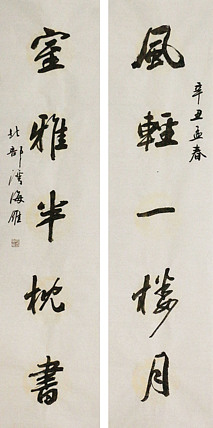 風輕一樓月
辛丑孟春
室雅半枕書
北部灣海雁